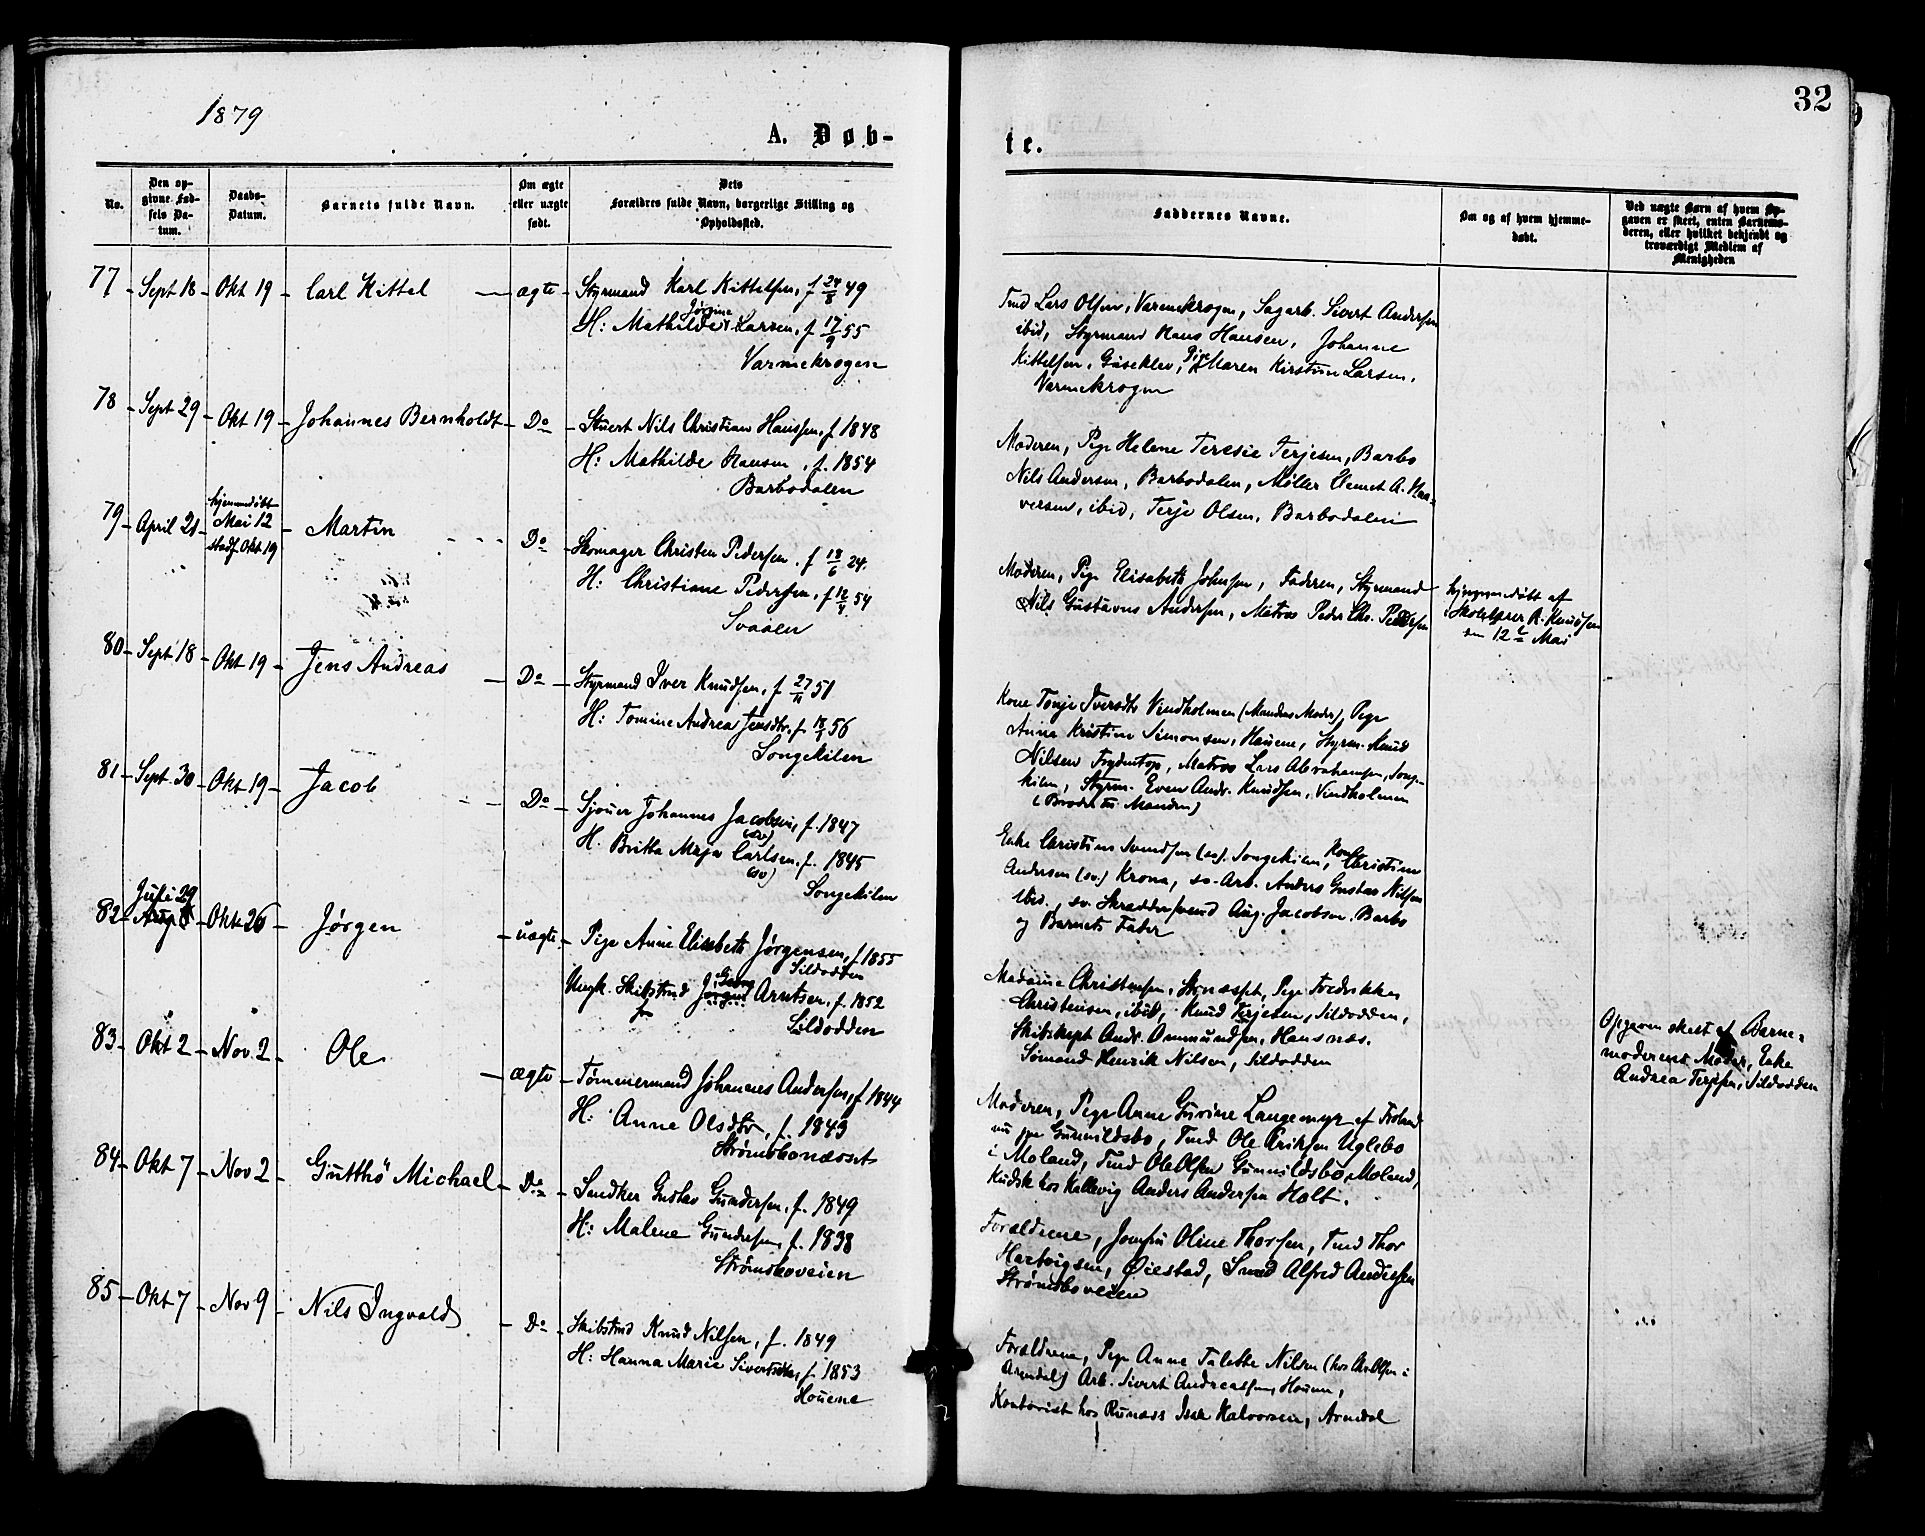 1879
A. Døb-
te.
32
No.
Den op-
givne Fød-
sels Da-
tum.
Daabs-
Datum.
Barnets fulde Navn.
Om ægte
eller uægte
født.
Dets
Forældres fulde Navn, borgerlige Stilling og
Opholdssted.
Faddernes Navne.
Om og af hvem hjemme-
døbt.
Ved uægte Børn af hvem Op-
gaven er skeet, enten Barnemo-
deren, eller hvilket bekjendt og
troværdigt Medlem af
Menigheden
77 Sept 18 Okt 19 Carl Kittel ægte Styrmand Karl Kittelsen, f 24/8 49
Jørgine
H: Mathilde Larsen, f 17/9 55
Varmekrogen
Tmd Lars Olsen, Varmekrogen, Sagarb. Sivert Andersen
ibid, Styrmand Hans Hansen, Johanne
Kittelsen, Gaseklev, Pige Maren Kirstine Larsen,
Varmekrogen
78 Sept 29 Okt 19 Johannes Bernholdt Do Stuert Nils Christian Hanssen, f 1848
H: Mathilde Hansen, f. 1854
Barbodalen
Moderen, Pige Helene Teresie Terjesen, Barbo
Nils Andersen, Barbodalen, Møller Clemet A. Haa-
versen, ibid, Terje Olsen, Barbodalen
79 April 21 hjemmedøbt
Mai 12
stadf. Okt 19 Martin Do Skomager Christen Pedersen, f 18/6 24.
H: Christiane Pedersen, f 12/4 54
Svaalen
Moderen, Pige Elisabeth Johnsen, Faderen, Styrmand
Nils Gustavus Andersen, Matros Peder Chr. Pedersen
hjemmedøbt af
Skolelærer R. Knudsen
den 12te Mai
80 Sept 18 Okt 19 Jens Andreas Do Styrmand Iver Knudsen, f 27/11 51
H: Tomine Andrea Jensdtr. f 18/1 56
Songekilen
Kone Tonje Iversdtr Vindholmen (Mandens Moder), Pige
Anne Kristine Simonsen, Houene, Styrm. Knud
Nilsen Frydentop, Matros Lars Abrahamsen, Songe-
kilen, Styrm. Even Andr. Knudsen, Vindholmen
(Broder til Manden)
81 Sept. 30 Okt 19 Jacob Do Sjouer Johannes Jacobsen, f. 1847
(sv)
H. Britta Maja Carlsen, f. 1845
(sv)
Songekilen
Enke Christine Svendsen (sv). Songekilen, Kone Christine
Andersen (sv.) Krona, sv. Arb. Anders Gustav Nilsen
ibid., sv. Skrædersvend Aug. Jacobsen. Barbo
og Barnets Fader
82 Juli 29
Aug. 8 Okt 26 Jørgen uægte Pige Anne Elisabeth Jørgensen, f. 1855
Sildodden
Ungk. Skibstmd Georg Arntsen, f. 1852
Sildodden
Madame Christensen, Strøesset, Pige Fredrikke
Christensen, ibid, Knud Terjesen, Sildodden,
Skibskapt Andr. Ommundsen, Hansnæs.
Sømand Henrik Nilsen, Sildodden
Opgaven skeet af Barne-
moderens Moder, Enke
Andrea Terjesen, Sildodden
83 Okt 2 Nov. 2 Ole ægte Tømmermand Johannes Andersen, f 1844
H: Anne Olsdtr, f. 1843
Strømsbonæsset
Moderen, Pige Anne Gurine Langemyr af Froland
nu paa Gunnildsbo, Tmd Ole Eriksen Uglebo
i Moland, Tmd Ole Olsen Gunnildsbo, Moland,
Kudsk hos Kallevig Anders Andersen Holt.
84 Okt 7 Nov 2 Gutthò Michael Do Snedker Gustav Gundersen, f. 1849
H: Malene Gundersen, f. 1838
Strømsboveien
Forældrene, Jomfru Oline Thorsen, Tmd Thor
Hartvigsen, Øiestad, Smed Alfred Andersen
Strømsboveien
85 Okt 7 Nov 9 Nils Ingvald Do Skibstmd Knud Nilsen, f. 1849
H: Hanna Marie Sivertsdtr, f 1853
Houene
Forældrene, Pige Anne Talette Nilsen (hos A. Olsen i
Arendal) Arb. Sivert Andreassen, Houene,
Kontorist hos Isak Halvorsen, Arendal